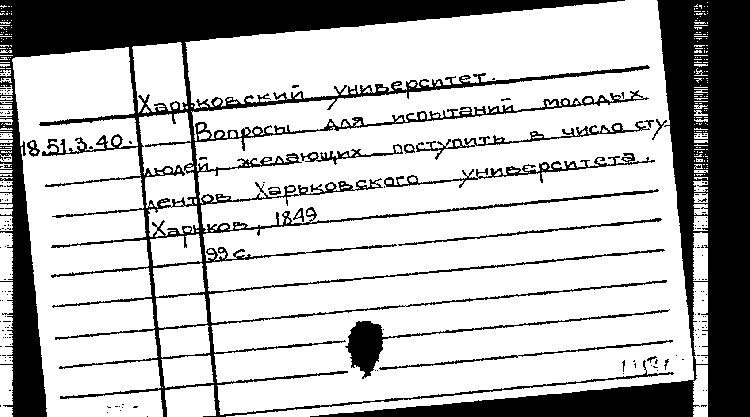 Харьковский университет.
18.51.3.40. Вопросы для испытаний молодых
людей, желающих поступить в число сту-
дентов Харьковского университета.
Харьков, 1849
99 с.